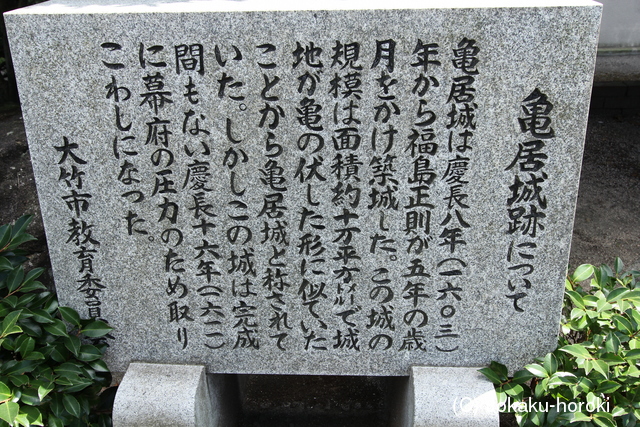 亀居城跡について
亀居城は慶長八年(一六〇三)
年から福島正則が五年の歳
月をかけ築城した。この城の
規模は面積約十万平方メートルで城
地が亀の伏した形に似ていた
ことから亀居城と称されて
いた。しかしこの城は完成
間もない慶長十六年(一六一一)
に幕府の圧力のため取り
こわしになった。
大竹市教育委員会
-horoki